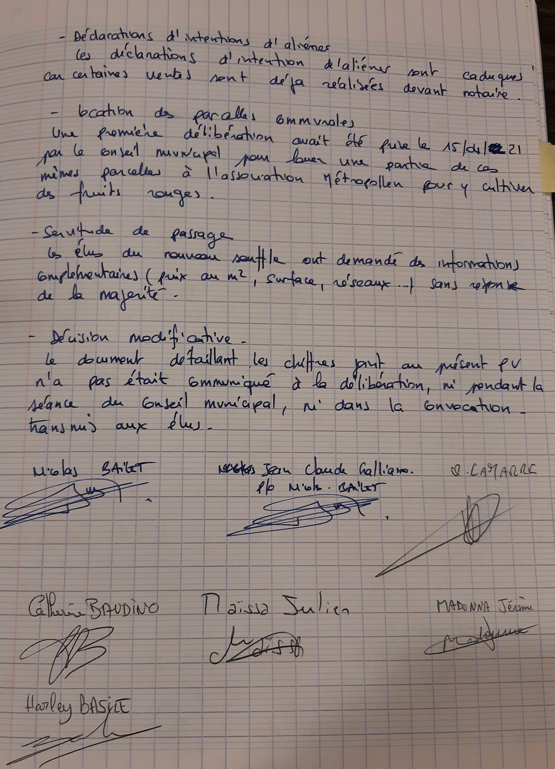 - Déclarations d'intentions d'aliéner
les déclarations d'intention d'aliéner sont caduques
car certaines ventes sont déja réalisées devant notaire.
- location des parcelles communales
Une première délibération avait été prise le 15/04/21
par le conseil municipal pour louer une partie de ces
mêmes parcelles à l'association Métropollen pour y cultiver
des fruits rouges.
- Servitude de passage
les élus du nouveau souffle ont demandé des informations
complémentaires (prix au m², surface, réseaux...) sans reponse
de la majorité.
- Décision modificative.
le document détaillant les chiffres joint au présent PV
n'a pas était communiqué à la délibération, ni pendant la
séance du conseil municipal, ni dans la convocation
transmis aux élus.
Nicolas BAILET
Jean Claude Galliano.
P/o Nicolas BAILET
LAMARRE
Catherine BAUDINO
Naïssa Julien
MADONNA Jérôme
Harley BASILE